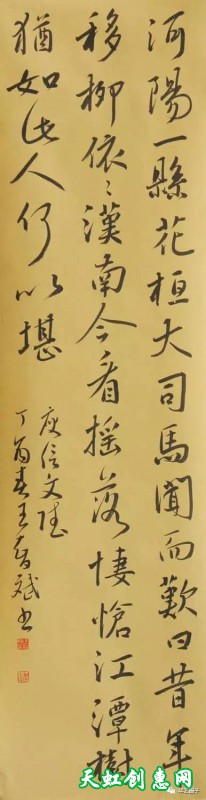 河陽一縣花桓大司馬聞而歎曰昔年
移柳依〻漢南今看搖落悽愴江潭樹
猶如此人何以堪
庾信文
丁酉春王斌书
天虹创惠网